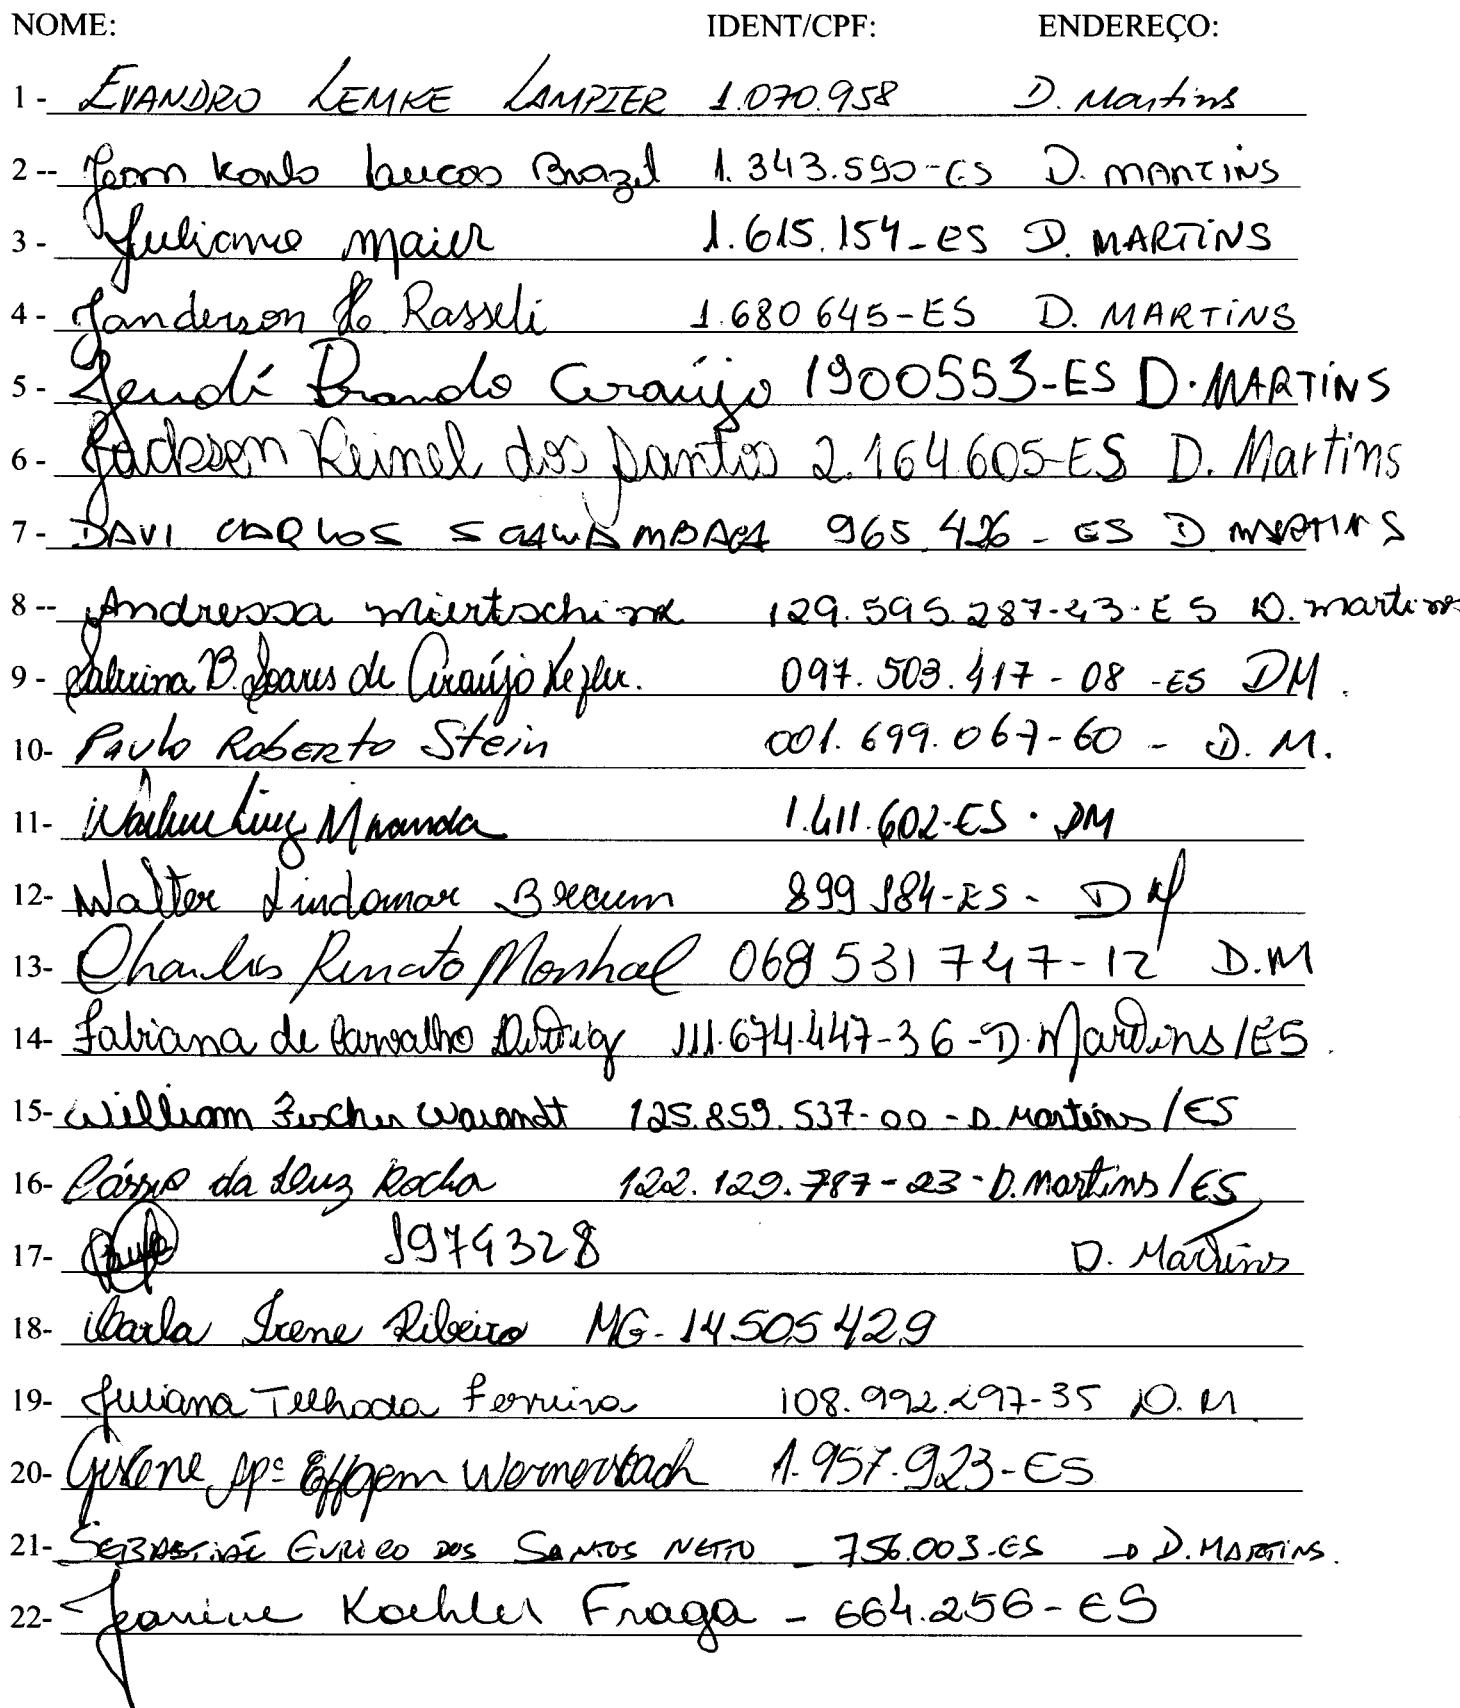 NOME: IDENT/CPF: ENDEREÇO:
1 - EVANDRO LEMKE LAMPIER 1.070.958 D. Martins
2 -- Jean Karlo Lucas Brazil 1.343.590-ES D. MARTINS
3 - Juliano Maier 1.615.154-ES D. MARTINS
4 - Janderson Rasseli 1.680645-ES D. MARTINS
5 - Brando Araújo 1900553-ES D. MARTINS
6 - Jackson Reinel dos Santos 2.164.605-ES D. Martins
7 - DAVI CARLOS 965.426 - ES D MARTINS
8 -- Andressa 129.595.287-43-ES D. martins
9 - Sabrina B. Soares de Araújo 097.503.417-08 -ES DM.
10- Paulo Roberto Stein 001.699.067-60 - D. M.
11- Luiz Miranda 1.411.602-ES. DM
12- Walter Lindomar 899 984-ES - DM
13- Charles Renato 068 531 747-12 D.M
14- Fabiana de Carvalho 111.674.447-36-D. Martins/ES.
15- William Fischer 125.859.537-00-D. Martins/ES
16- Cássio da Luz Rocha 122.129.787-23-D. Martins/ES
17- 1974328 D. Martins
18- Carla Irene Ribeiro MG-14505429
19- Juliana Telhada Ferreira 108.992.297-35 D. M.
20- Gislene Apª Effgem Wernersbach 1.957.923-ES
21- SEBASTIÃO EURICO DOS SANTOS NETTO - 756.003-ES → D. MARTINS.
22- Jeanine Koehler Fraga - 664.256-ES